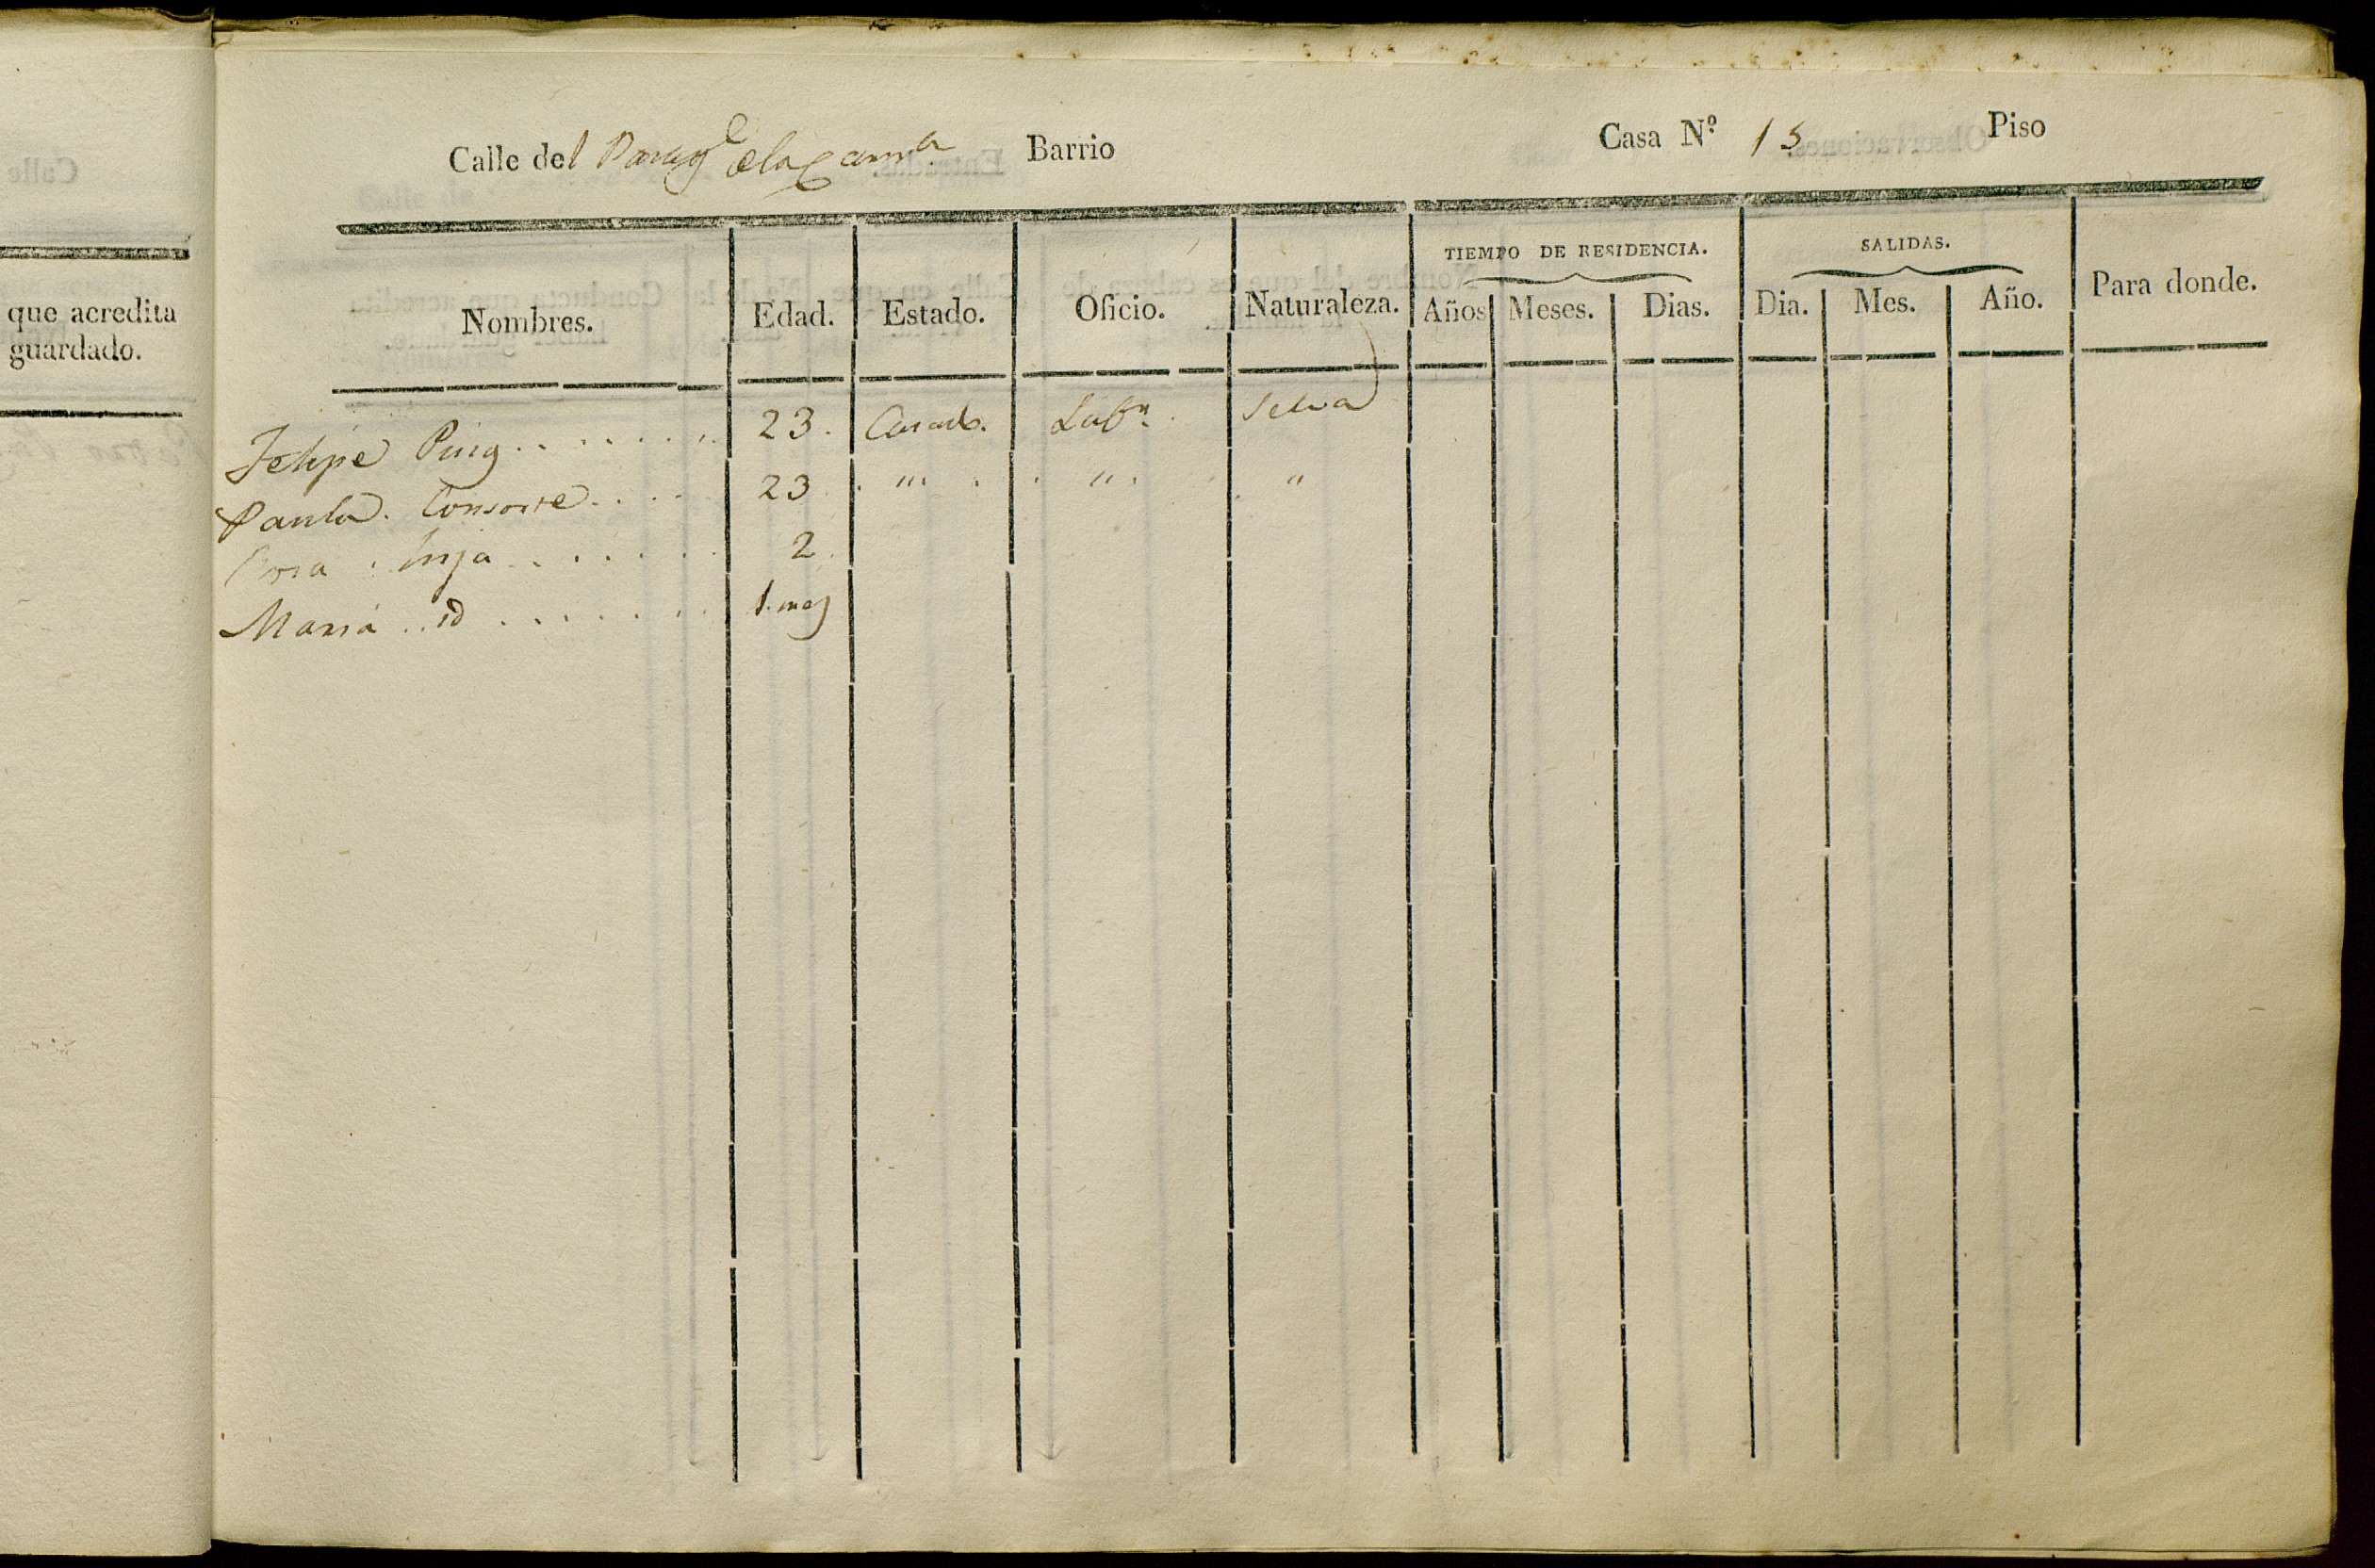 Calle
que acredita
guardado.
Calle del Barrio Casa N.º 15 Piso
TIEMPO DE RESIDENCIA. SALIDAS.
Nombres. Edad. Estado. Oficio. Naturaleza. Años Meses. Dias. Dia. Mes. Año. Para donde.
Felipe Puig . . . . . . . 23. Casado. Labr. Selva
Paula. Consorte . . . . 23 . "' . . " . . "
hija . . . . . . 2.
Maria . . id . . . . . . . 1. mes